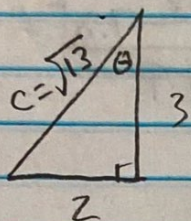 c=√13
θ
3
2